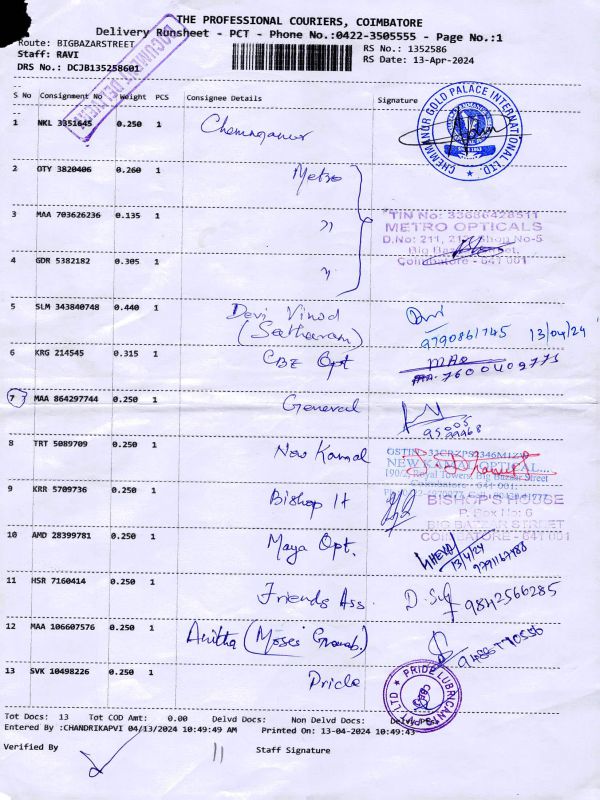 THE PROFESSIONAL COURIERS, COIMBATORE
Delivery Runsheet - PCT - Phone No.:0422-3505555 - Page No.:1
Route: BIGBAZARSTREET RS No.: 1352586
Staff: RAVI RS Date: 13-Apr-2024
DRS No.: DCJB135258601
S No Consignment No Weight PCS Consignee Details Signature
1 NKL 3351645 0.250 1
CHEMMANUR GOLD PALACE INTERNATIONAL LTD.
2 OTY 3820406 0.260 1 Metro
3 MAA 703626236 0.135 1 "
TIN No: 33636428511
METRO OPTICALS
D.No: 211, Shop No-5
Big Bazaar Street,
Coimbatore - 641 001
4 GDR 5382182 0.305 1 "
5 SLM 343840748 0.440 1 Devi Vinod
(Seetharam) 9790861745 13/04/24
6 KRG 214545 0.315 1 CBE Opt 7600409771
7 MAA 864297744 0.250 1 General
8 TRT 5089709 0.250 1 New Kamal
NEW KAMAL OPTICAL
Royal Towers, Big Bazaar Street
Coimbatore - 641 001
9 KRR 5709736 0.250 1 Bishop H
BISHOP'S HOUSE
P. Box No: 6
BIG BAZAR STREET
COIMBATORE - 641 001
10 AMD 28399781 0.250 1 Maya Opt. 13/4/24
9791167988
11 HSR 7160414 0.250 1 Friends Ass. 9842566285
12 MAA 106607576 0.250 1 Anitha (Moses Gnanab.)
13 SVK 10498226 0.250 1 Pride
PRIDE LUBRICANTS
Tot Docs: 13 Tot COD Amt: 0.00 Delvd Docs: Non Delvd Docs:
Entered By :CHANDRIKAPVI 04/13/2024 10:49:49 AM Printed On: 13-04-2024 10:49:43
Verified By Staff Signature